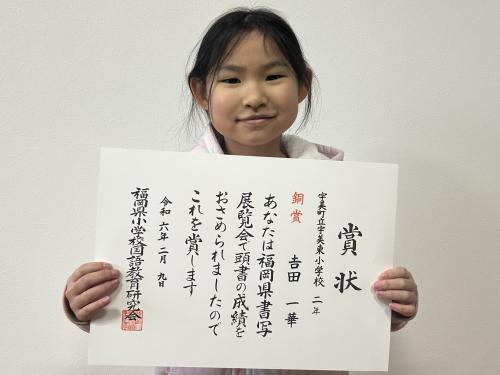 賞状
宇美町立宇美東小学校 二年
銅賞 吉田 一華
あなたは福岡県書写
展覧会で頭書の成績を
おさめられましたので
これを賞します
令和六年二月九日
福岡県小学校国語教育研究会